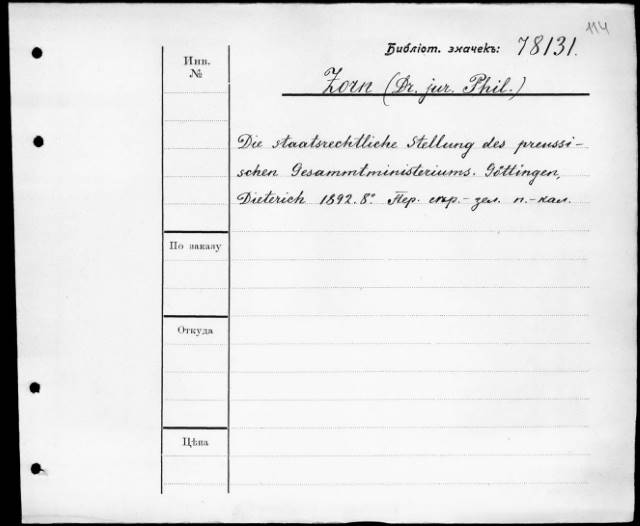 114
Библіот. значекъ: 78131.
Инв.
№
Zorn (Dr. jur. Phil.)
Die staatsrechtliche Stellung des preussi-
schen Gesammtministeriums. Göttingen,
Dieterich 1892. 8º. Пер. сѣр.-зел. п.-кал.
По заказу
Откуда
Цѣна